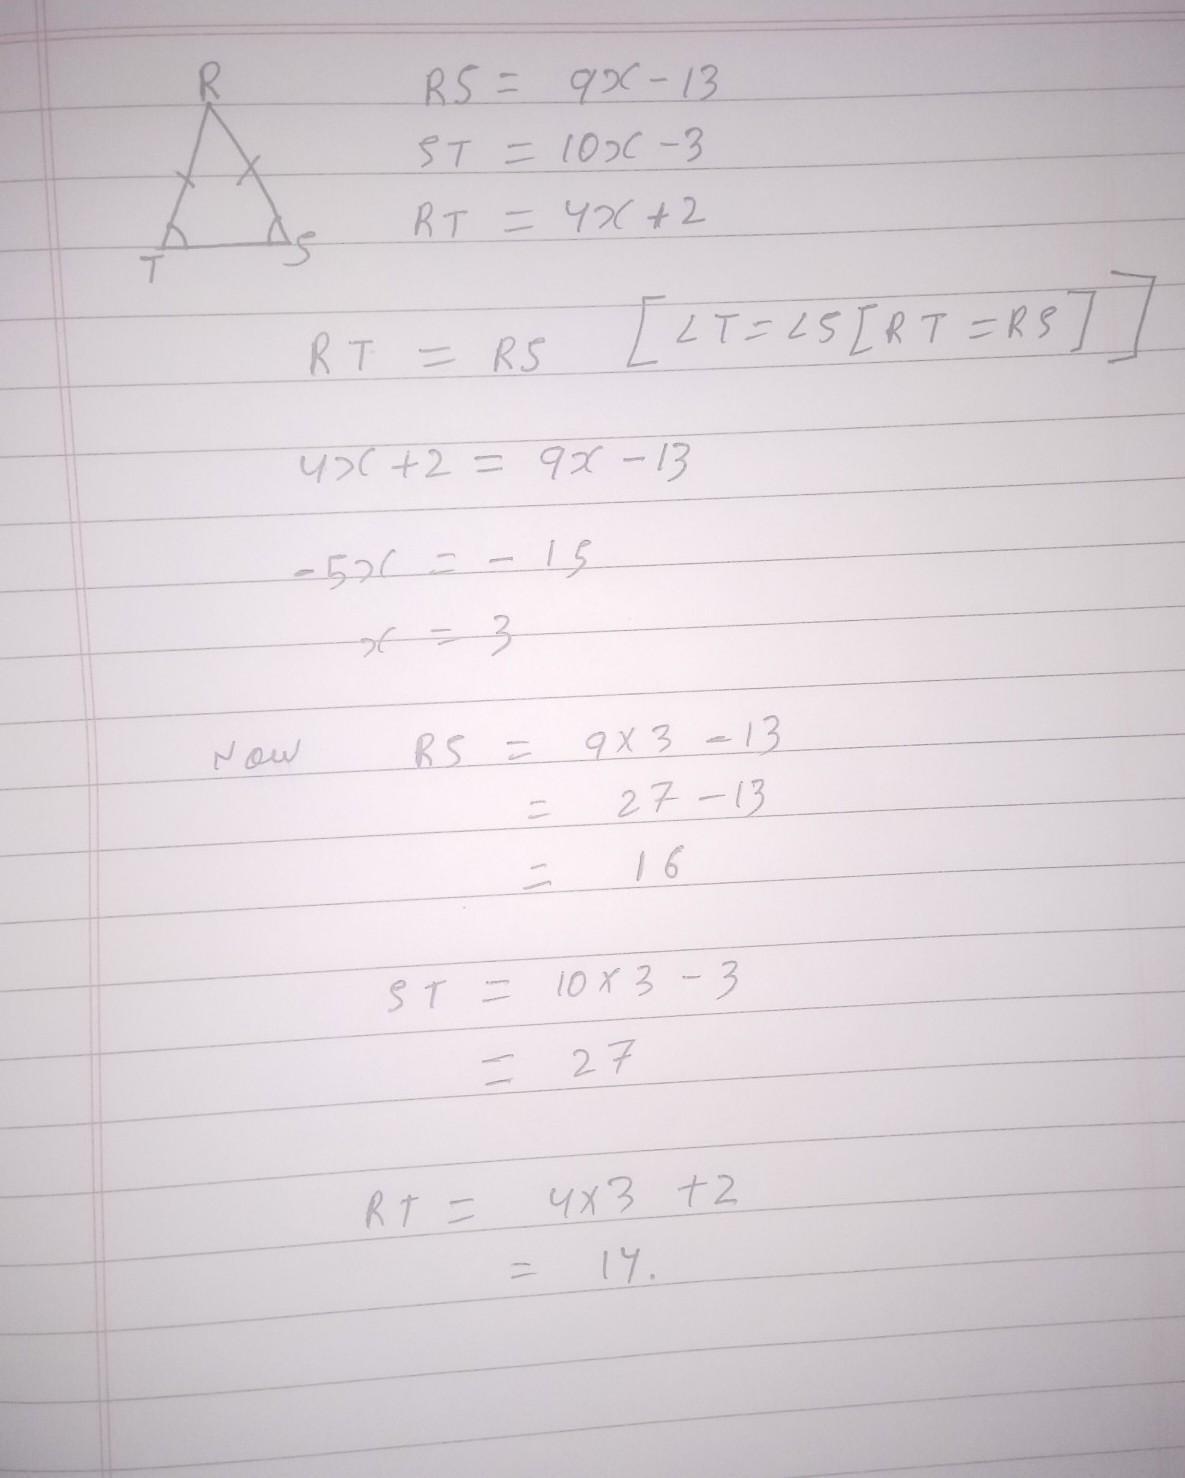 R
RS = 9x - 13
ST = 10x - 3
RT = 4x + 2
T S
RT = RS [∠T = ∠S [RT = RS]]
4x + 2 = 9x - 13
-5x = -15
x = 3
Now RS = 9 × 3 - 13
= 27 - 13
= 16
ST = 10 × 3 - 3
= 27
RT = 4 × 3 + 2
= 14.